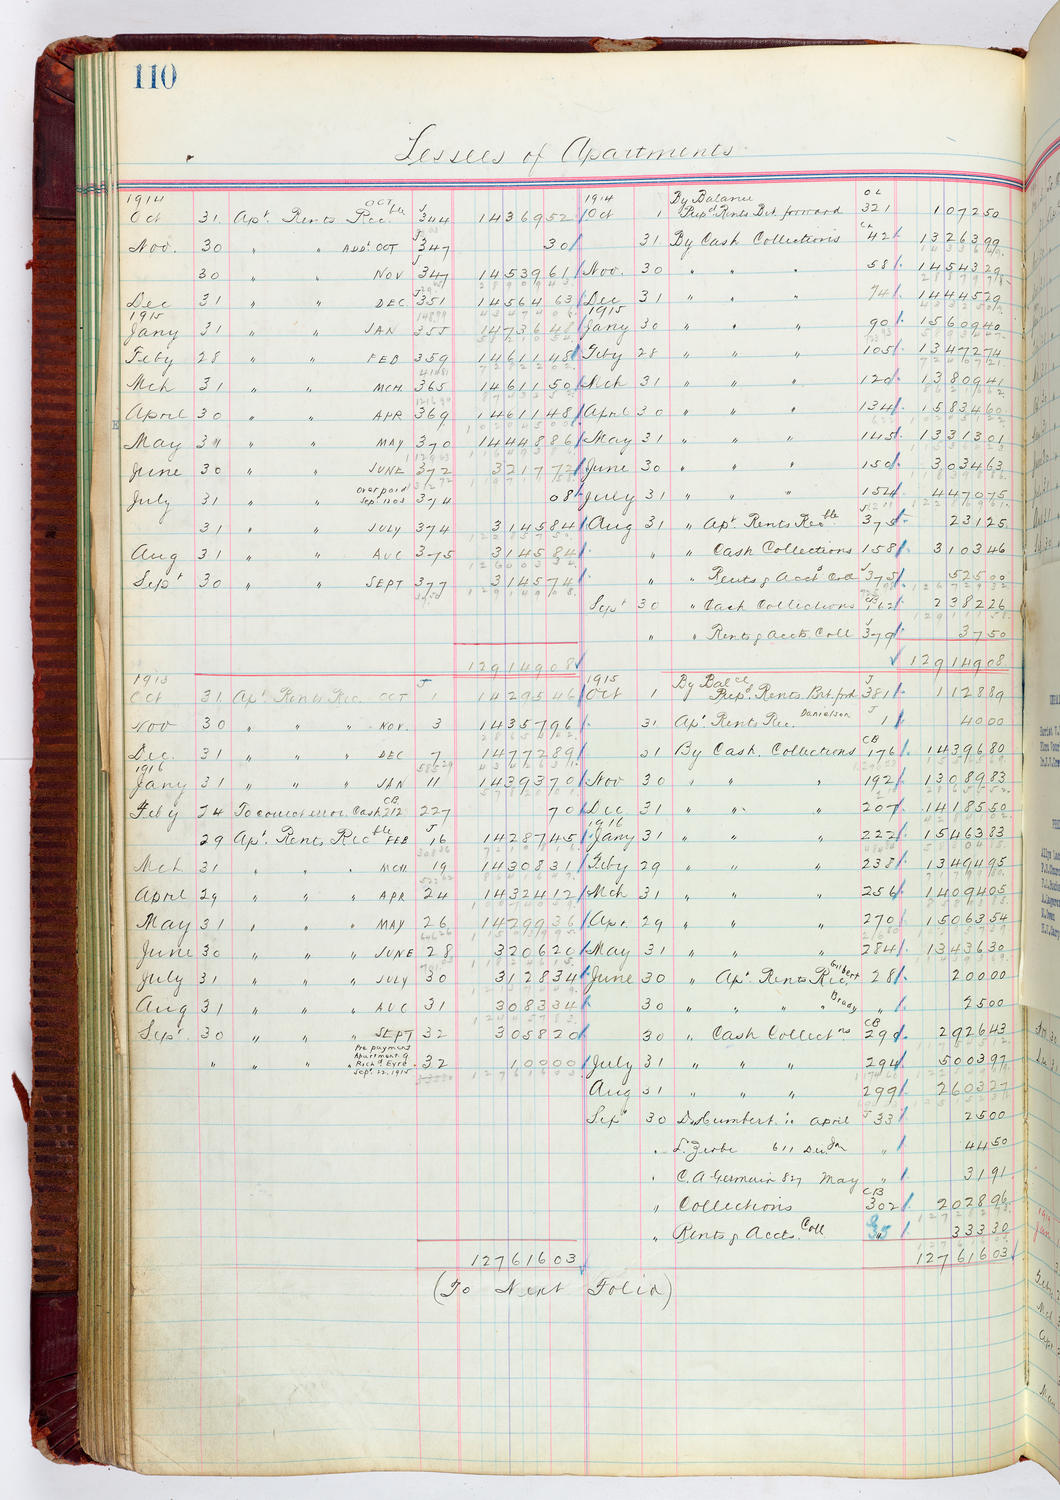 110
Lessees of Apartments
1914 1914 By Balance O L
Oct 31 Apt. Rents Recble OCT J 344 1436952 Oct 1 Prepd Rents Brt. forward 321 107250
Nov. 30 " " ADDL OCT J 347 30 31 By Cash Collections 42 1326399
30 " " NOV J 347 1453961 Nov. 30 " " " 58 1454329
Dec 31 " " DEC. J 351 1456463 Dec 31 " " " 74 1444529
1915 1915
Jany 31 " " JAN 355 1473648 Jany 30 " " " 90 1560940
Feby 28 " " FEB 359 1461148 Feby 28 " " " 105 1347274
Mch 31 " " MCH 365 1461150 Mch 31 " " " 120 1380941
April 30 " " APR 369 1461148 April 30 " " " 134 1583460
May 31 " " MAY 370 1444886 May 31 " " " 145 1331301
June 30 " " JUNE 372 321772 June 30 " " " 150 303463
July 31 " " Overpaid 374 08 July 31 " " " 154 447075
31 " " JULY 374 314584 Aug 31 " Apt. Rents Recble 375 23125
Aug 31 " " AUG 375 314584 " " Cash Collections 158 310346
Sept 30 " " SEPT 377 314574 " " Rents & Accts J 375 52500
Sept 30 " Cash Collections CB 162 238226
" " Rents & Accts. Coll J 379 3750
12914908 12914908
1915 1915 By Balce
Oct 31 Apt. Rents Rec. OCT J 1 1429546 Oct 1 Prepd. Rents. Brt. fwd J 381 112889
Nov 30 " " " NOV. 3 1435796 31 Apt. Rents Rec. Danielson J 1 4000
Dec. 31 " " " DEC 7 1477289 31 By Cash. Collections CB 176 1439680
1916
Jany 31 " " " JAN 11 1439370 Nov 30 " " " 192 1308983
Feby 24 To correct error. Cash CB 212 227 70 Dec 31 " " " 207 1418550
1916
29 Apt. Rents. Recble FEB J 16 1428745 Jany 31 " " " 222 1546383
Mch 31 " " " MCH 19 1430831 Feby 29 " " " 238 1349495
April 29 " " " APR 24 1432412 Mch 31 " " " 256 1409405
May 31 " " " MAY 26 1429936 Apr. 29 " " " 270 1506354
June 30 " " " JUNE 28 320620 May 31 " " " 284 1343630
July 31 " " " JULY 30 312834 June 30 " Apt. Rents Rec. Gilbert 28 20000
Aug 31 " " " AUG 31 308334 30 " " " " Brady " 2500
Sept. 30 " " " SEPT 32 305820 30 " Cash Collectns CB 290 292643
" " " " Pre payment
Apartment 9
Richd. Eyre
Sept. 22. 1915 32 10000 July 31 " " " 294 500397
Aug 31 " " " 299 260327
Sept 30 April J 33 2500
" 611 " 4450
" C. A. Germain May " 3191
" Collections CB 302 202896
" Rents & Accts. Coll 35 33330
12761603 12761603
(To Next Folio)